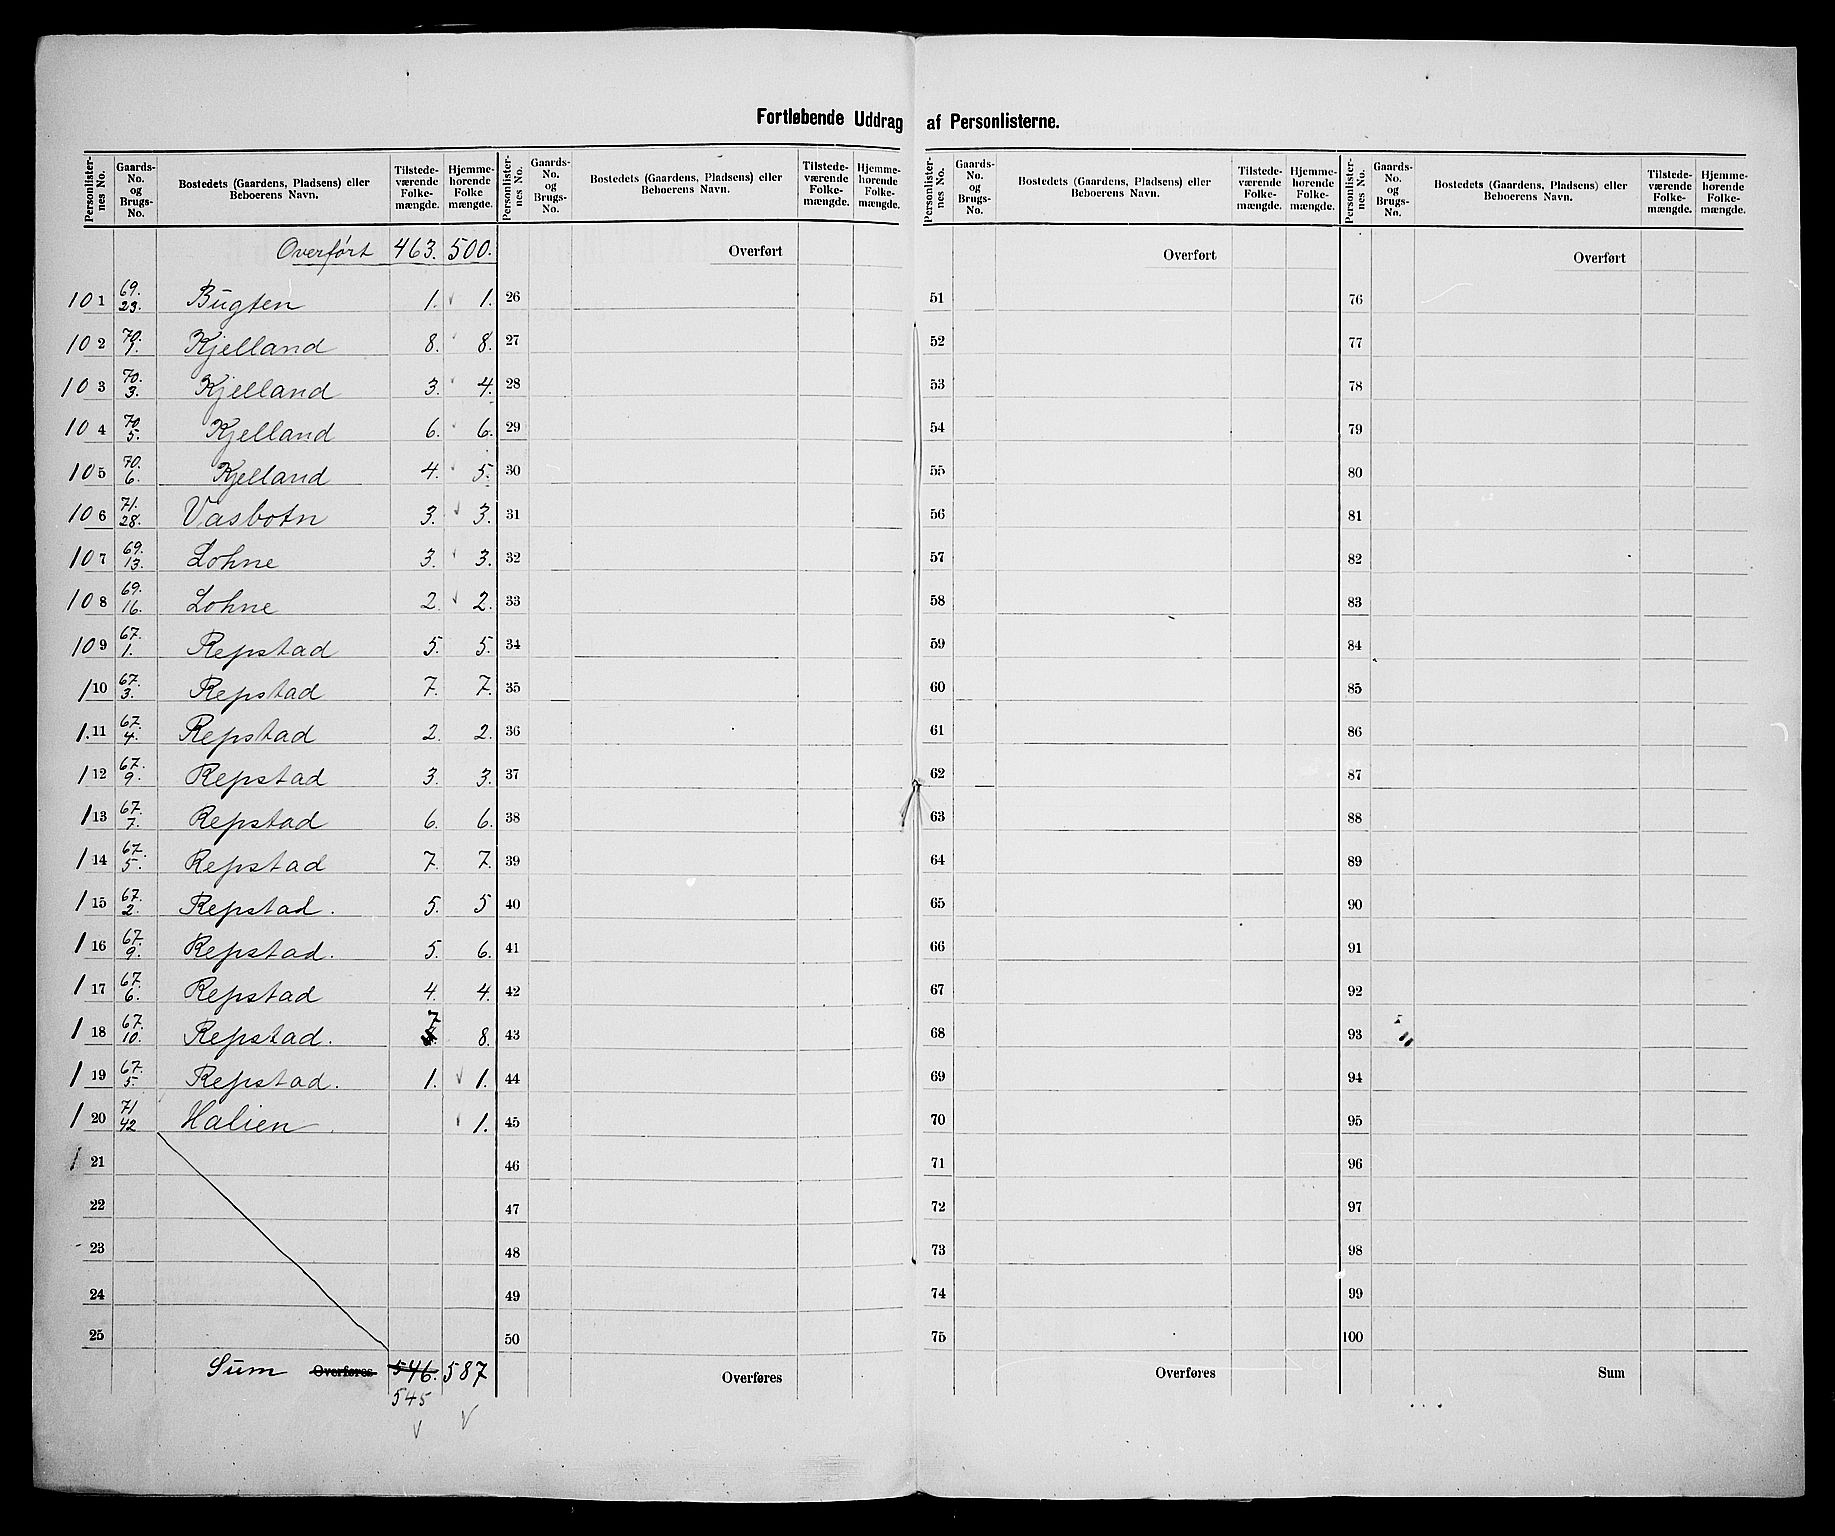 Fortløbende Uddrag af Personlisterne.
Personlisternes No. | Gaards-No. og Brugs-No. | Bostedets (Gaardens, Pladsens) eller Beboerens Navn. | Tilstedeværende Folkemængde. | Hjemmehørende Folkemængde.
Overført 463. 500.
101 69. 23. Bugten 1. 1.
102 70. 1. Kjelland 8. 8.
103 70. 3. Kjelland 3. 4.
104 70. 5. Kjelland 6. 6.
105 70. 6. Kjelland 4. 5.
106 71. 28. Vasbotn 3. 3.
107 69. 13. Lohne 3. 3.
108 69. 16. Lohne 2. 2.
109 67. 1. Repstad 5. 5.
110 67. 3. Repstad 7. 7.
1.11 67. 4. Repstad 2. 2.
112 67. 9. Repstad 3. 3.
113 67. 7. Repstad 6. 6.
114 67. 5. Repstad 7. 7.
115 67. 2. Repstad. 5. 5
116 67. 9. Repstad. 5. 6.
117 67. 6. Repstad 4. 4.
118 67. 10. Repstad. 7 8.
119 67. 5. Repstad. 1. 1.
120 71 42 Halien. 1.
121
22
23
24
25
Sum Overføres 546. 587
545
Personlisternes No. | Gaards-No. og Brugs-No. | Bostedets (Gaardens, Pladsens) eller Beboerens Navn. | Tilstedeværende Folkemængde. | Hjemmehørende Folkemængde.
Overført
26
27
28
29
30
31
32
33
34
35
36
37
38
39
40
41
42
43
44
45
46
47
48
49
50
Overføres
Personlisternes No. | Gaards-No. og Brugs-No. | Bostedets (Gaardens, Pladsens) eller Beboerens Navn. | Tilstedeværende Folkemængde. | Hjemmehørende Folkemængde.
Overført
51
52
53
54
55
56
57
58
59
60
61
62
63
64
65
66
67
68
69
70
71
72
73
74
75
Overføres
Personlisternes No. | Gaards-No. og Brugs-No. | Bostedets (Gaardens, Pladsens) eller Beboerens Navn. | Tilstedeværende Folkemængde. | Hjemmehørende Folkemængde.
Overført
76
77
78
79
80
81
82
83
84
85
86
87
88
89
90
91
92
93
94
95
96
97
98
99
100
Sum